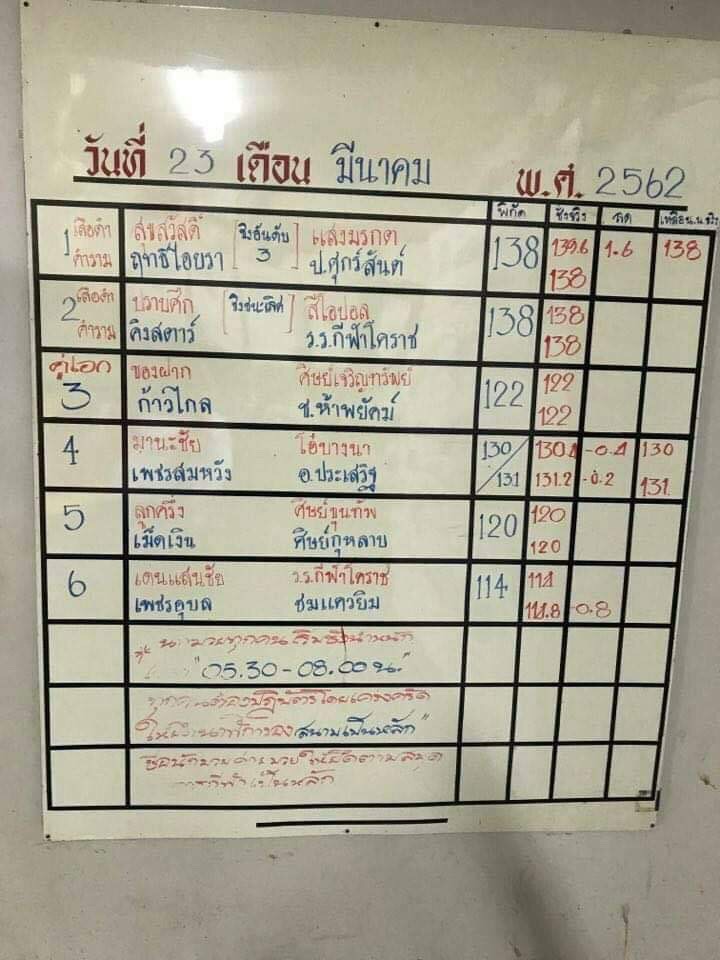 วันที่ 23 เดือน มีนาคม พ.ศ. 2562
พิกัด ชั่งจริง ลด เหลือน.น.จริง
1 เสือดำ สุขสวัสดิ์ [ชิงอันดับ แสงมรกต 138 139.6 1.6 138
คำราม ฤทธิ์ไอยรา 3] ป.ศุกร์สันต์ 138
2 เสือดำ ปราบศึก [ชิงชนะเลิศ] สีโอปอล 138 138
คำราม คิงสตาร์ ร.ร.กีฬาโคราช 138
คู่เอก ของฝาก ศิษย์เจริญทรัพย์ 122 122
3 ก้าวไกล ช.ห้าพยัคฆ์ 122
4 มานะชัย โอ๋บางนา 130/ 130.4 -0.4 130
เพชรสมหวัง อ.ประเสริฐ /131 131.2 -0.2 131
5 ลูกครึ่ง ศิษย์ขุนทัพ 120 120
เม็ดเงิน ศิษย์กุหลาบ 120
6 เดนแสนชัย ร.ร.กีฬาโคราช 114 114
เพชรอุบล ชมแควยิม 114.8 -0.8
นักมวยทุกคน เริ่มชั่งน้ำหนัก
"05.30-08.00 น."
ทุกคนต้องปฏิบัติโดยเคร่งครัด
สนามเป็นหลัก"
เป็นหลัก